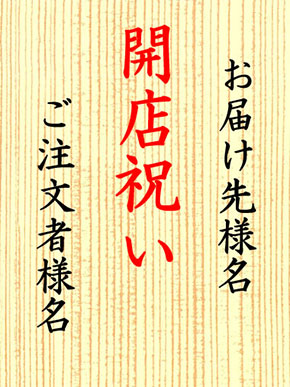 お届け先様名
開店祝い
ご注文者様名